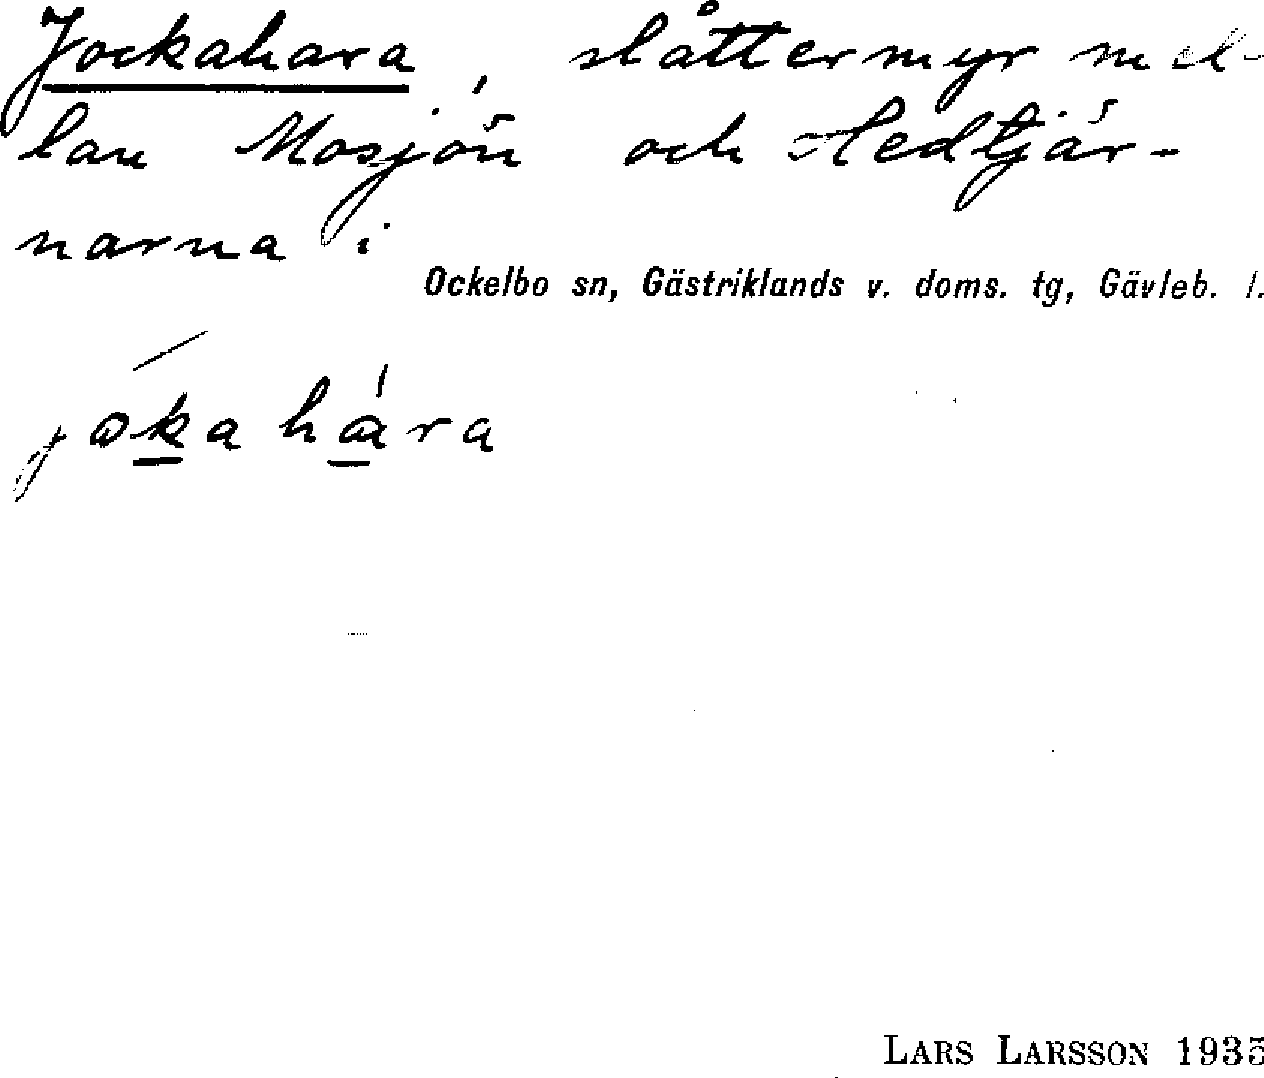 Jockahara, slåttermyr mel-
lan Mosjön och Hedtjär-
narna i
Ockelbo sn, Gästriklands v. doms. tg, Gävleb. l.
jɷkahára
LARS LARSSON 1935